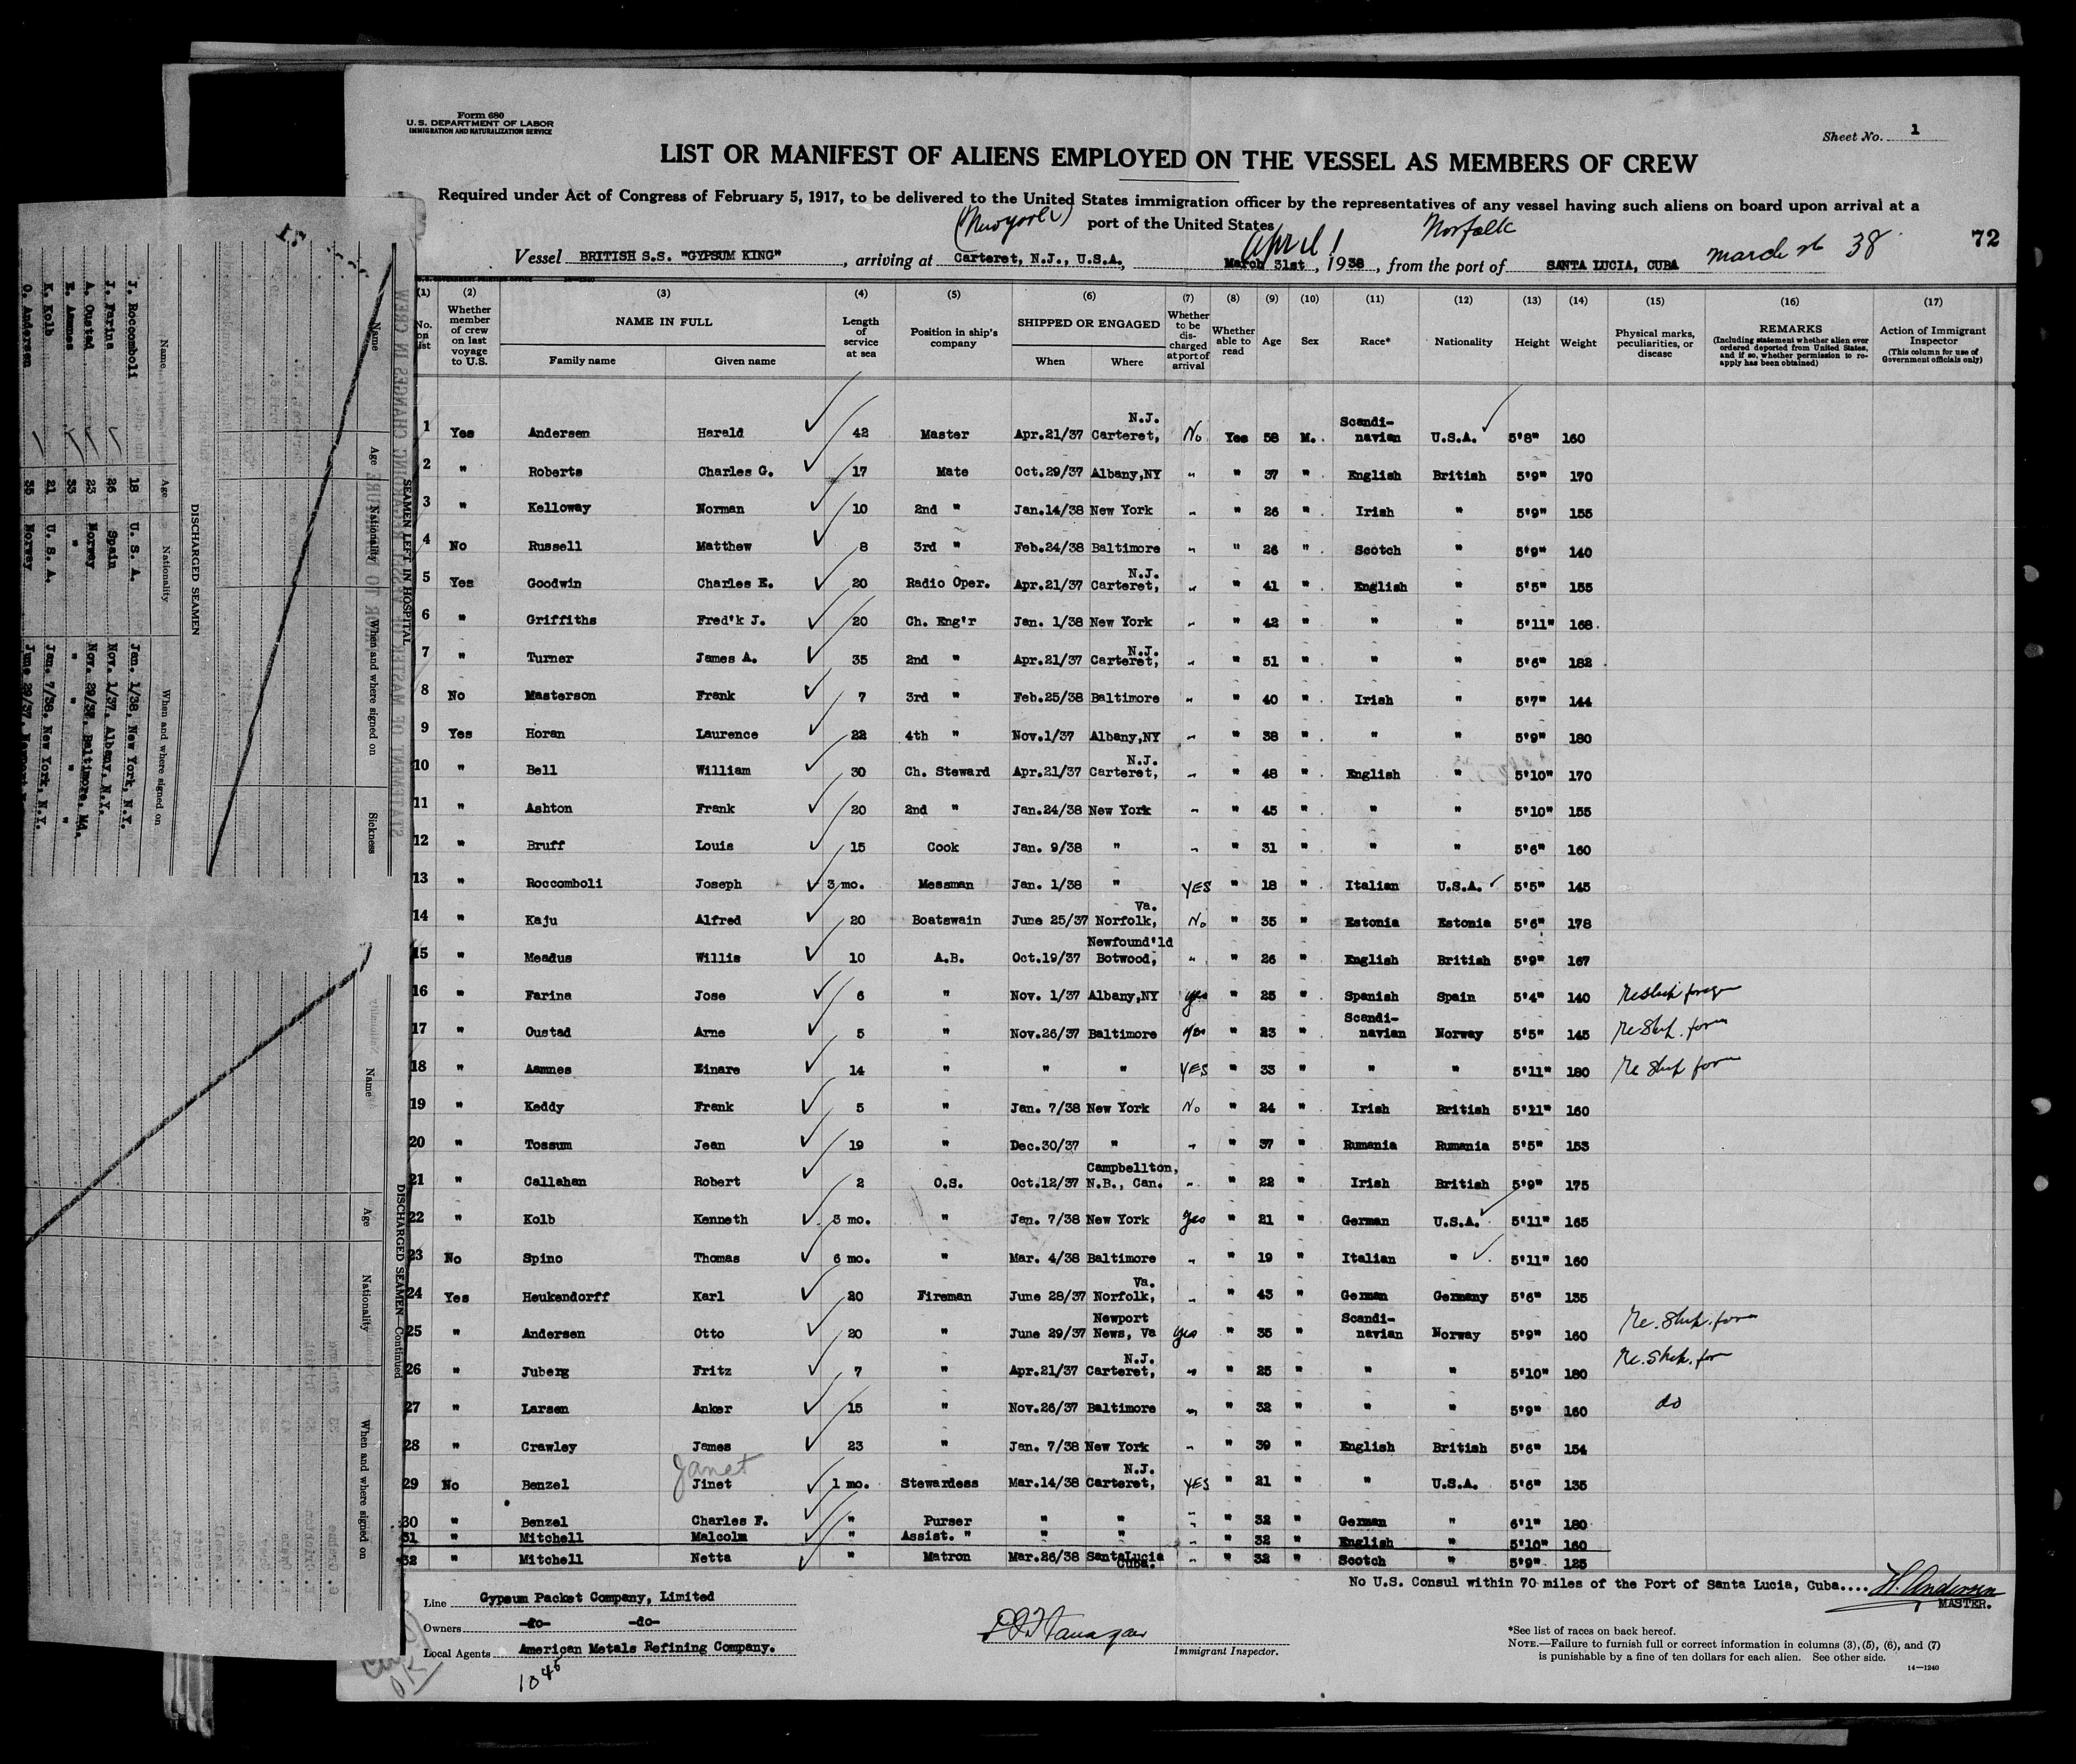 Form 680
U. S. DEPARTMENT OF LABOR
IMMIGRATION AND NATURALIZATION SERVICE
Sheet No. 1
LIST OR MANIFEST OF ALIENS EMPLOYED ON THE VESSEL AS MEMBERS OF CREW
Required under Act of Congress of February 5, 1917, to be delivered to the United States immigration officer by the representatives of any vessel having such aliens on board upon arrival at a
port of the United States
(New York) April 1 Norfolk March 38 72
Vessel BRITISH S.S. "GYPSUM KING", arriving at Carteret, N.J., U.S.A., March 31st, 1938, from the port of SANTA LUCIA, CUBA
(1) (2) (3) (4) (5) (6) (7) (8) (9) (10) (11) (12) (13) (14) (15) (16) (17)
No. on list
Whether member of crew on last voyage to U.S.
NAME IN FULL
Family name Given name
Length of service at sea
Position in ship's company
SHIPPED OR ENGAGED
When Where
Whether to be discharged at port of arrival
Whether able to read
Age
Sex
Race*
Nationality
Height
Weight
Physical marks, peculiarities, or disease
REMARKS
(Including statement whether alien ever ordered deported from United States, and if so, whether permission to reapply has been obtained)
Action of Immigrant Inspector
(This column for use of Government officials only)
1 Yes Andersen Harald 42 Master Apr.21/37 Carteret, N.J. No Yes 58 M. Scandinavian U.S.A. 5'8" 160
2 " Roberts Charles G. 17 Mate Oct.29/37 Albany,NY " " 37 " English British 5'9" 170
3 " Kelloway Norman 10 2nd " Jan.14/38 New York " " 26 " Irish " 5'9" 155
4 No Russell Matthew 8 3rd " Feb.24/38 Baltimore " " 26 " Scotch " 5'9" 140
5 Yes Goodwin Charles E. 20 Radio Oper. Apr.21/37 Carteret, N.J. " " 41 " English " 5'5" 155
6 " Griffiths Fred'k J. 20 Ch. Eng'r Jan. 1/38 New York " " 42 " " " 5'11" 168
7 " Turner James A. 35 2nd " Apr.21/37 Carteret, N.J. " " 51 " " " 5'6" 182
8 No Masterson Frank 7 3rd " Feb.25/38 Baltimore " " 40 " Irish " 5'7" 144
9 Yes Horan Laurence 22 4th " Nov.1/37 Albany,NY " " 38 " " " 5'9" 180
10 " Bell William 30 Ch. Steward Apr.21/37 Carteret, N.J. " " 48 " English " 5'10" 170
11 " Ashton Frank 20 2nd " Jan.24/38 New York " " 45 " " " 5'10" 155
12 " Bruff Louis 15 Cook Jan. 9/38 " " " 31 " " " 5'6" 160
13 " Roccomboli Joseph 3 mo. Messman Jan. 1/38 " YES " 18 " Italian U.S.A. 5'5" 145
14 " Kaju Alfred 20 Boatswain June 25/37 Norfolk, Va. No " 35 " Estonia Estonia 5'6" 178
15 " Meadus Willis 10 A.B. Oct.19/37 Newfound'ld Botwood, " " 26 " English British 5'9" 167
16 " Farina Jose 6 " Nov. 1/37 Albany,NY yes " 25 " Spanish Spain 5'4" 140
17 " Oustad Arne 5 " Nov.26/37 Baltimore yes " 23 " Scandinavian Norway 5'5" 145 Re Ship. for
18 " Aamnes Einare 14 " " " YES " 33 " " " 5'11" 180 Re Ship for
19 " Keddy Frank 5 " Jan. 7/38 New York No " 24 " Irish British 5'11" 160
20 " Tossum Jean 19 " Dec.30/37 " " " 37 " Rumania Rumania 5'5" 153
21 " Callahan Robert 2 O.S. Oct.12/37 Campbellton, N.B., Can. " " 22 " Irish British 5'9" 175
22 " Kolb Kenneth 3 mo. " Jan. 7/38 New York Yes " 21 " German U.S.A. 5'11" 165
23 No Spino Thomas 6 mo. " Mar. 4/38 Baltimore " " 19 " Italian " 5'11" 160
24 Yes Heukendorff Karl 20 Fireman June 28/37 Norfolk, Va. " " 43 " German Germany 5'6" 135
25 " Andersen Otto 20 " June 29/37 Newport News, Va yes " 35 " Scandinavian Norway 5'9" 160 Re. Ship. for
26 " Juberg Fritz 7 " Apr.21/37 Carteret, N.J. " " 25 " " " 5'10" 180 Re. Ship. for
27 " Larsen Anker 15 " Nov.26/37 Baltimore " " 32 " " " 5'9" 160 do
28 " Crawley James 23 " Jan. 7/38 New York " " 39 " English British 5'6" 154
Janet
29 No Benzel Jinet 1 mo. Stewardess Mar.14/38 Carteret, N.J. YES " 21 " " U.S.A. 5'6" 135
30 " Benzel Charles F. " Purser " " " " 32 " German " 6'1" 180
31 " Mitchell Malcolm " Assist. " " " " " 32 " English " 5'10" 160
32 " Mitchell Netta " Matron Mar.26/38 Santa Lucia Cuba. " " 32 " Scotch " 5'9" 125
No U.S. Consul within 70 miles of the Port of Santa Lucia, Cuba.... H. Andersen
MASTER.
Line Gypsum Packet Company, Limited
Owners -do- -do-
Local Agents American Metals Refining Company.
1045
Immigrant Inspector.
*See list of races on back hereof.
NOTE.—Failure to furnish full or correct information in columns (3), (5), (6), and (7)
is punishable by a fine of ten dollars for each alien. See other side.
14—1240
SEAMEN LEFT IN HOSPITAL
Name Age Nationality When and where signed on Sickness
DISCHARGED SEAMEN
Name Age Nationality When and where signed on
J. Roccomboli 18 U. S. A. Jan. 1/38. New York, N.Y.
J. Farina 26 Spain Nov. 1/37. Albany, N.Y.
A. Oustad 23 Norway Nov. 29/37. Baltimore. Md.
E. Aamnes 33 " " " "
K. Kolb 21 U. S. A. Jan. 7/38. New York, N.Y.
O. Andersen 35 Norway June 29/37.
DISCHARGED SEAMEN—Continued
Name Age Nationality When and where signed on